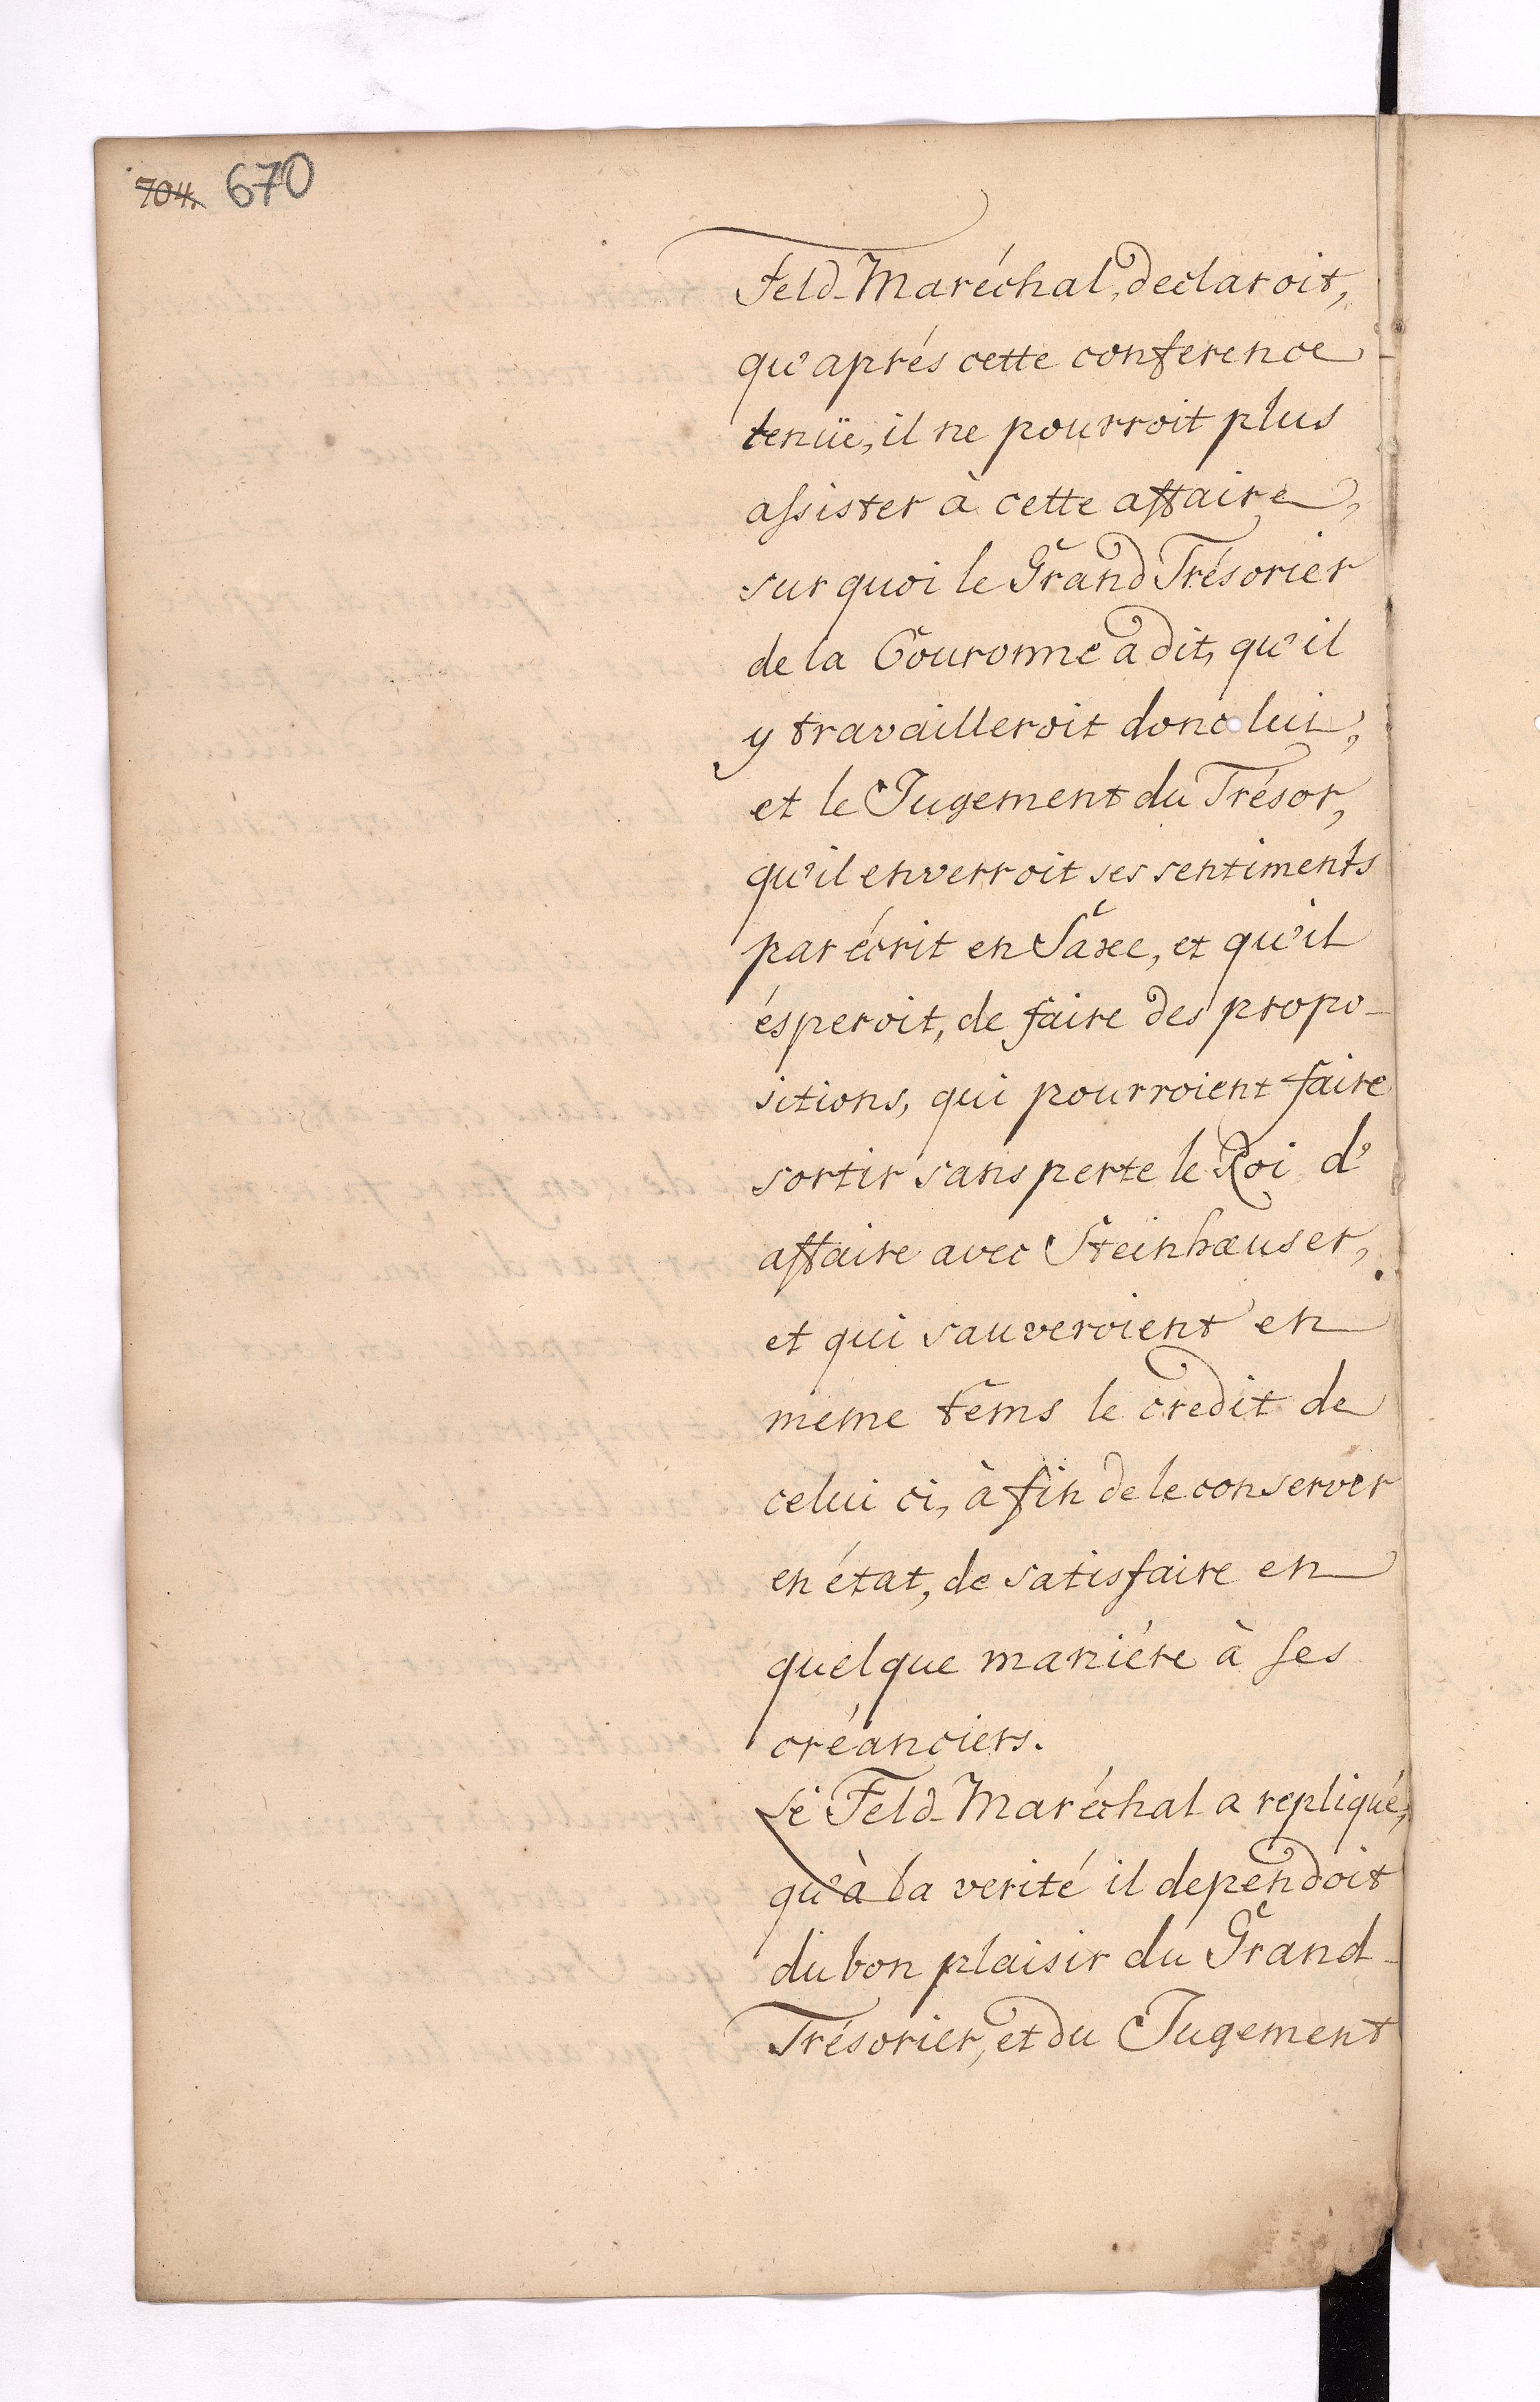 704. 670
Feld-Maréchal, declaroit,
qu'aprés cette conference
tenüe, il ne pourroit plus
assister à cette affaire,
sur quoi le Grand Trésorier
de la Couronne a dit, qu'il
y travailleroit donc lui,
et le Jugement du Trésor,
qu'il enverroit ses sentiments
par écrit en Saxe, et qu'il
ésperoit, de faire des propo-
sitions, qui pourroient faire
sortir sans perte le Roi d'
affaire avec Steinhæuser,
et qui sauveroient en
meme tems le credit de
celui ci, à fin de le conserver
en état, de satisfaire en
quelque maniére à ses
créanciers.
Le Feld-Maréchal a repliqué,
qu'à la verité il dependoit
du bon plaisir du Grand-
Trésorier, et du Jugement